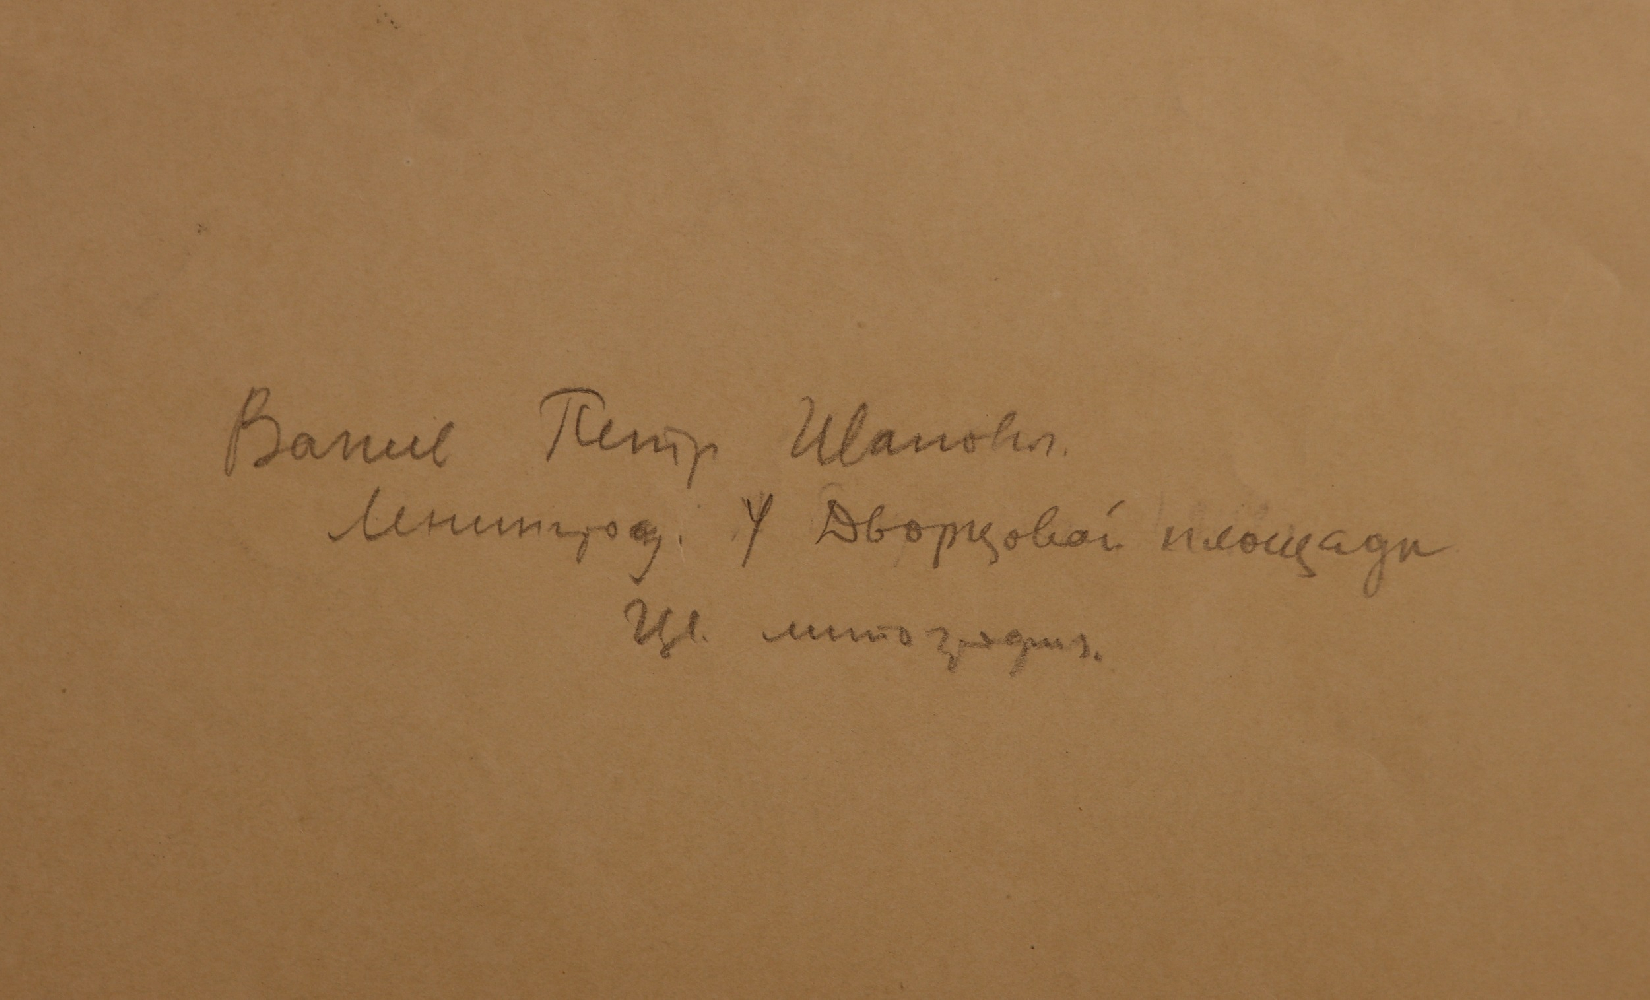 Ватив Петр Иванович.
Ленинград. У Дворцовой площади
Цв. литография.